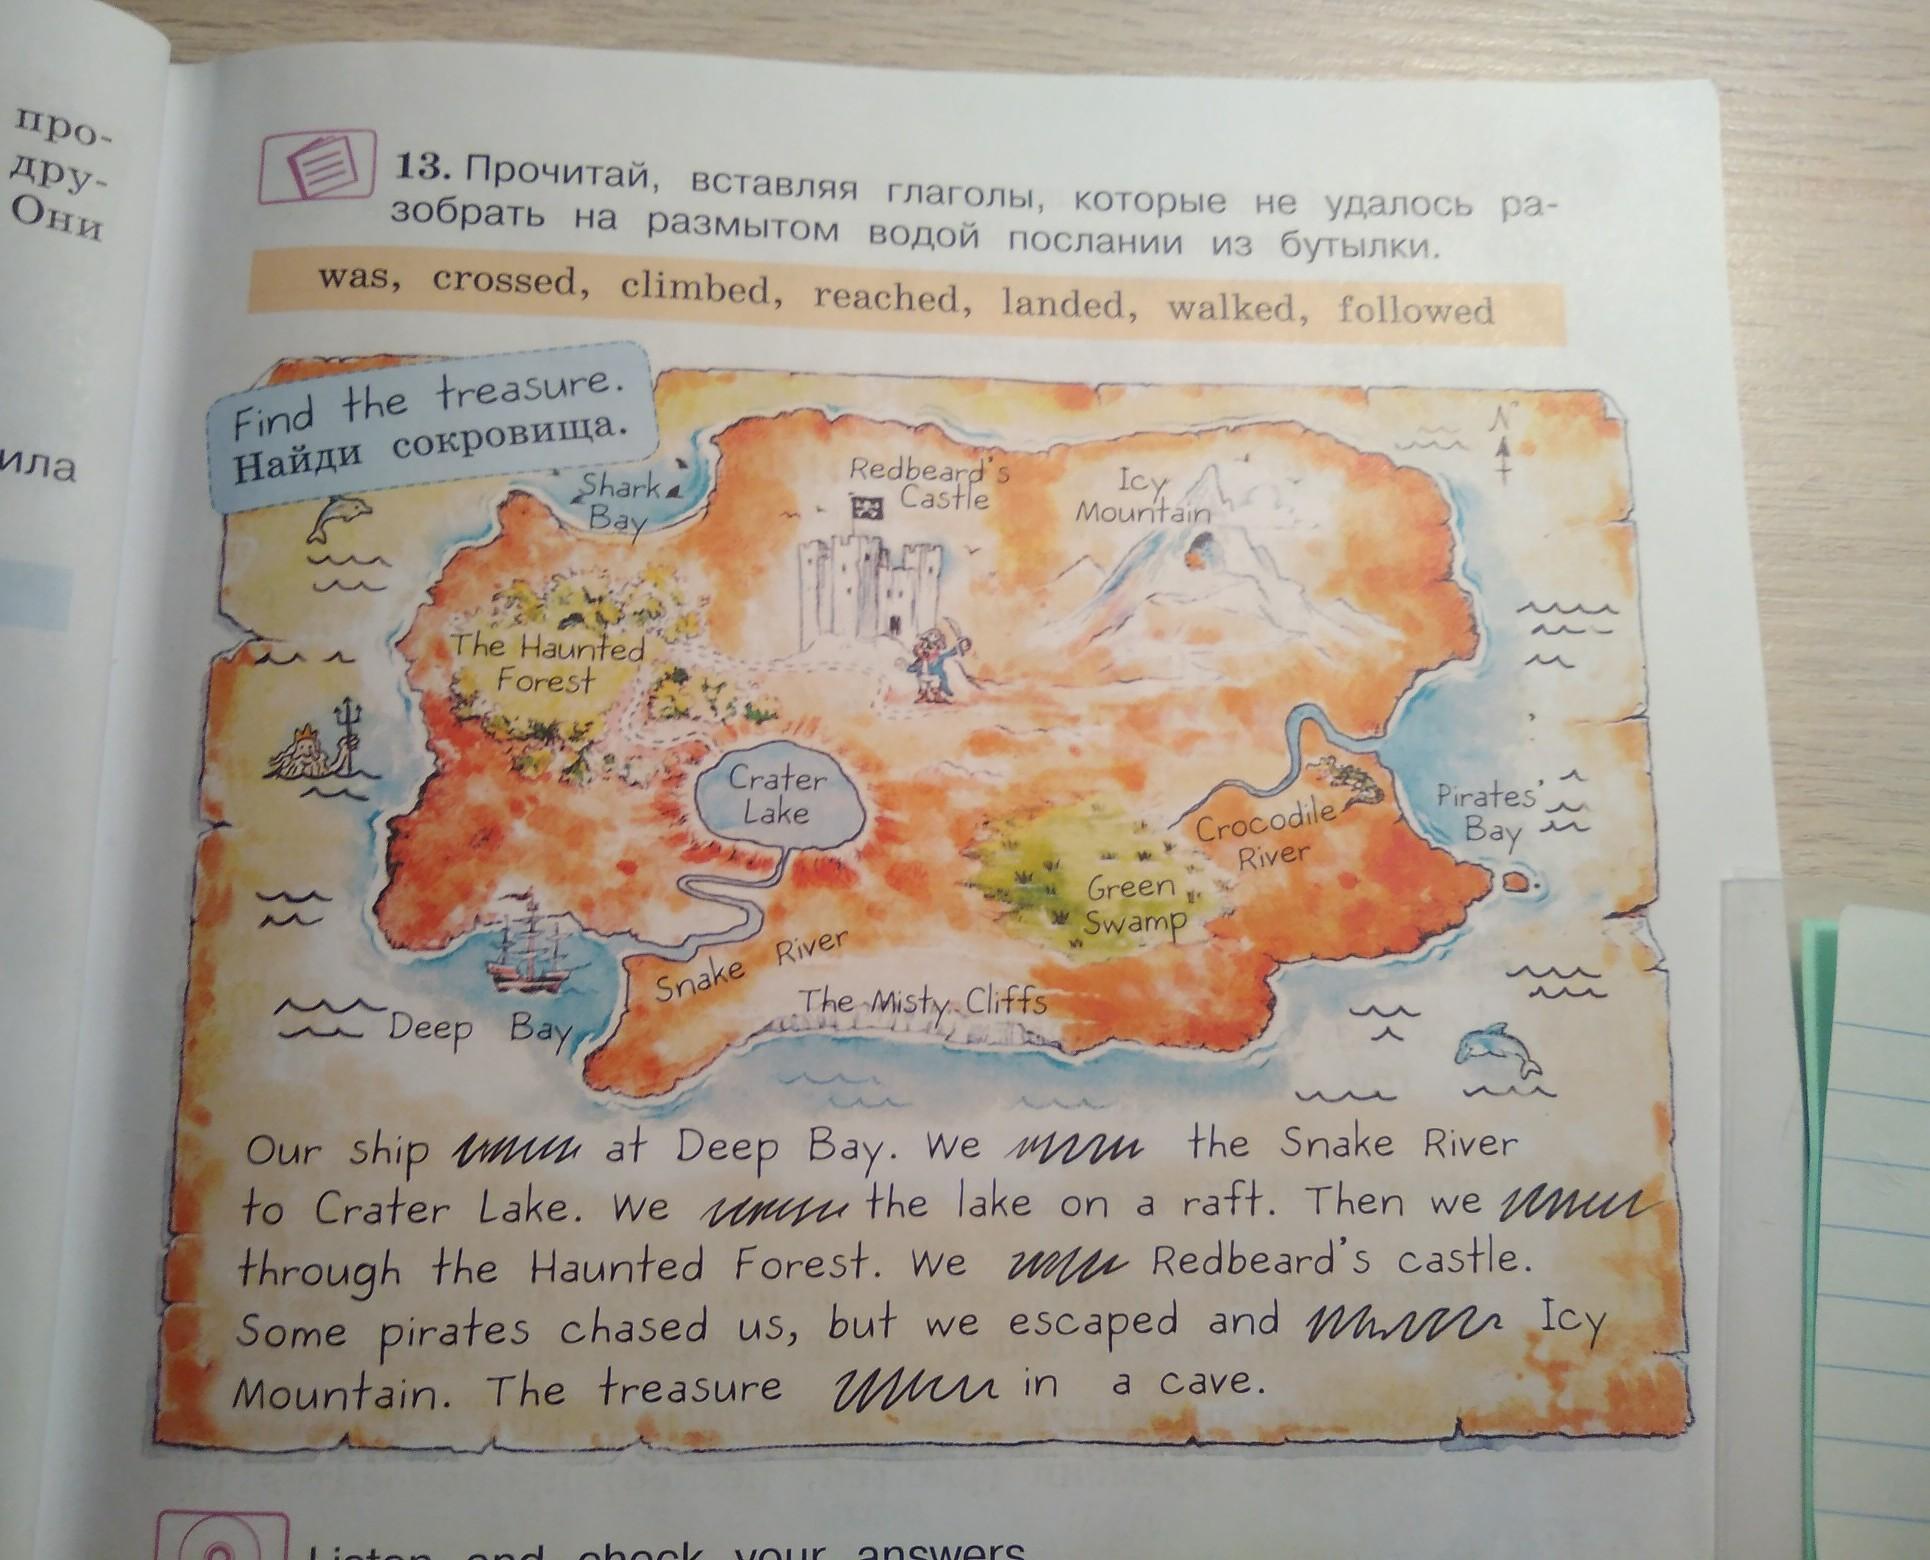 про-
дру-
Они
ила
13. Прочитай, вставляя глаголы, которые не удалось ра-
зобрать на размытом водой послании из бутылки.
was, crossed, climbed, reached, landed, walked, followed
Find the treasure.
Найди сокровища.
N
Shark
Bay
Redbeard's
Castle
Icy
Mountain
The Haunted
Forest
Crater
Lake
Pirates'
Bay
Crocodile
River
Green
Swamp
Snake River
The Misty Cliffs
Deep Bay
Our ship at Deep Bay. We the Snake River
to Crater Lake. We the lake on a raft. Then we
through the Haunted Forest. We Redbeard's castle.
Some pirates chased us, but we escaped and Icy
Mountain. The treasure in a cave.
Listen and check your answers